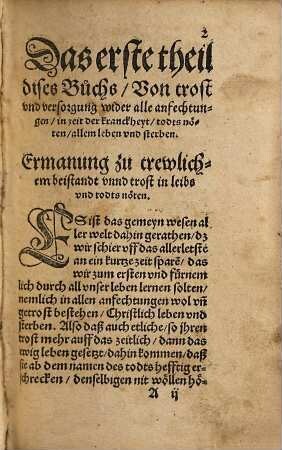 2
Das erste theil
dises Bůchs / Von trost
vnd versorgung wider alle anfechtun-
gen / in zeit der kranckheyt / todts nö-
ten / allem leben vnd sterben.
Ermanung zu trewlich-
em beistandt vnnd trost in leibs
vnd todts nöten.
ES ist das gemeyn wesen al
ler welt dahin gerathen / dz
wir schier vff das allerletste
an ein kurtze zeit sparē / das
wir zum ersten vnd fürnem
lich durch all vnser leben lernen solten /
nemlich in allen anfechtungen wol vñ
getrost bestehen / Christlich leben vnd
sterben. Also daß auch etliche / so jhren
trost mehr auff das zeitlich / dann das
ewig leben gesetzt / dahin kommen / daß
sie ab dem namen des todts hefftig er-
schrecken / denselbigen nit wöllen hö-
A ij